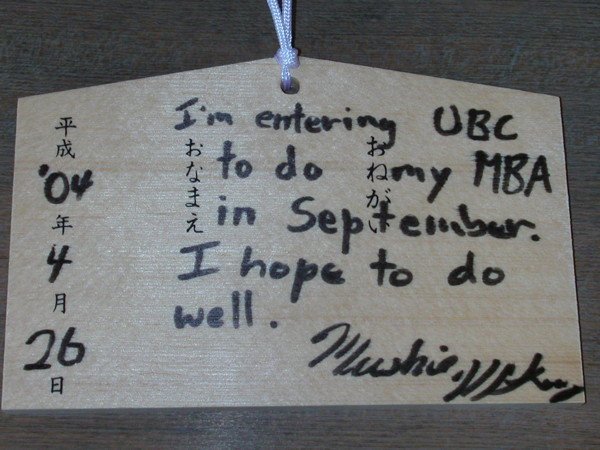 I'm entering UBC
to do my MBA
in September.
I hope to do
well.
おねがい
おなまえ
平成
'04
年
4
月
26
日